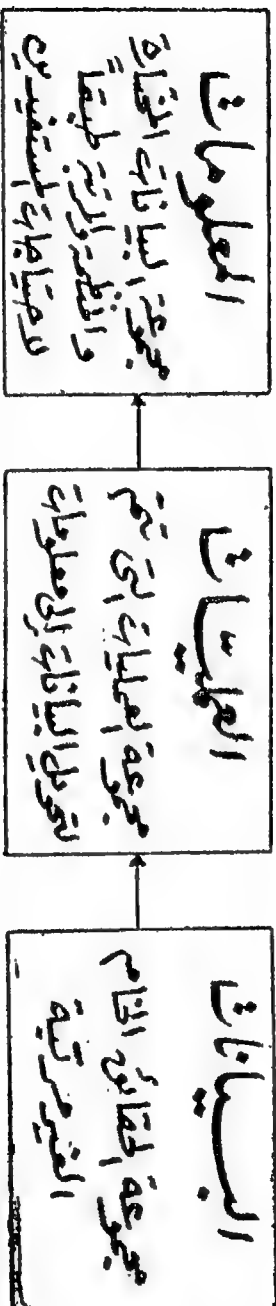 البيانات
مجموعة الحقائق الخام
الغير مرتبة
العمليات
مجموعة العمليات التى تتم
لتحويل البيانات إلى معلومات
المعلومات
مجموعة البيانات المختارة
والمنظمة والمرتبة طبقاً
لاحتياجات المستفيدين